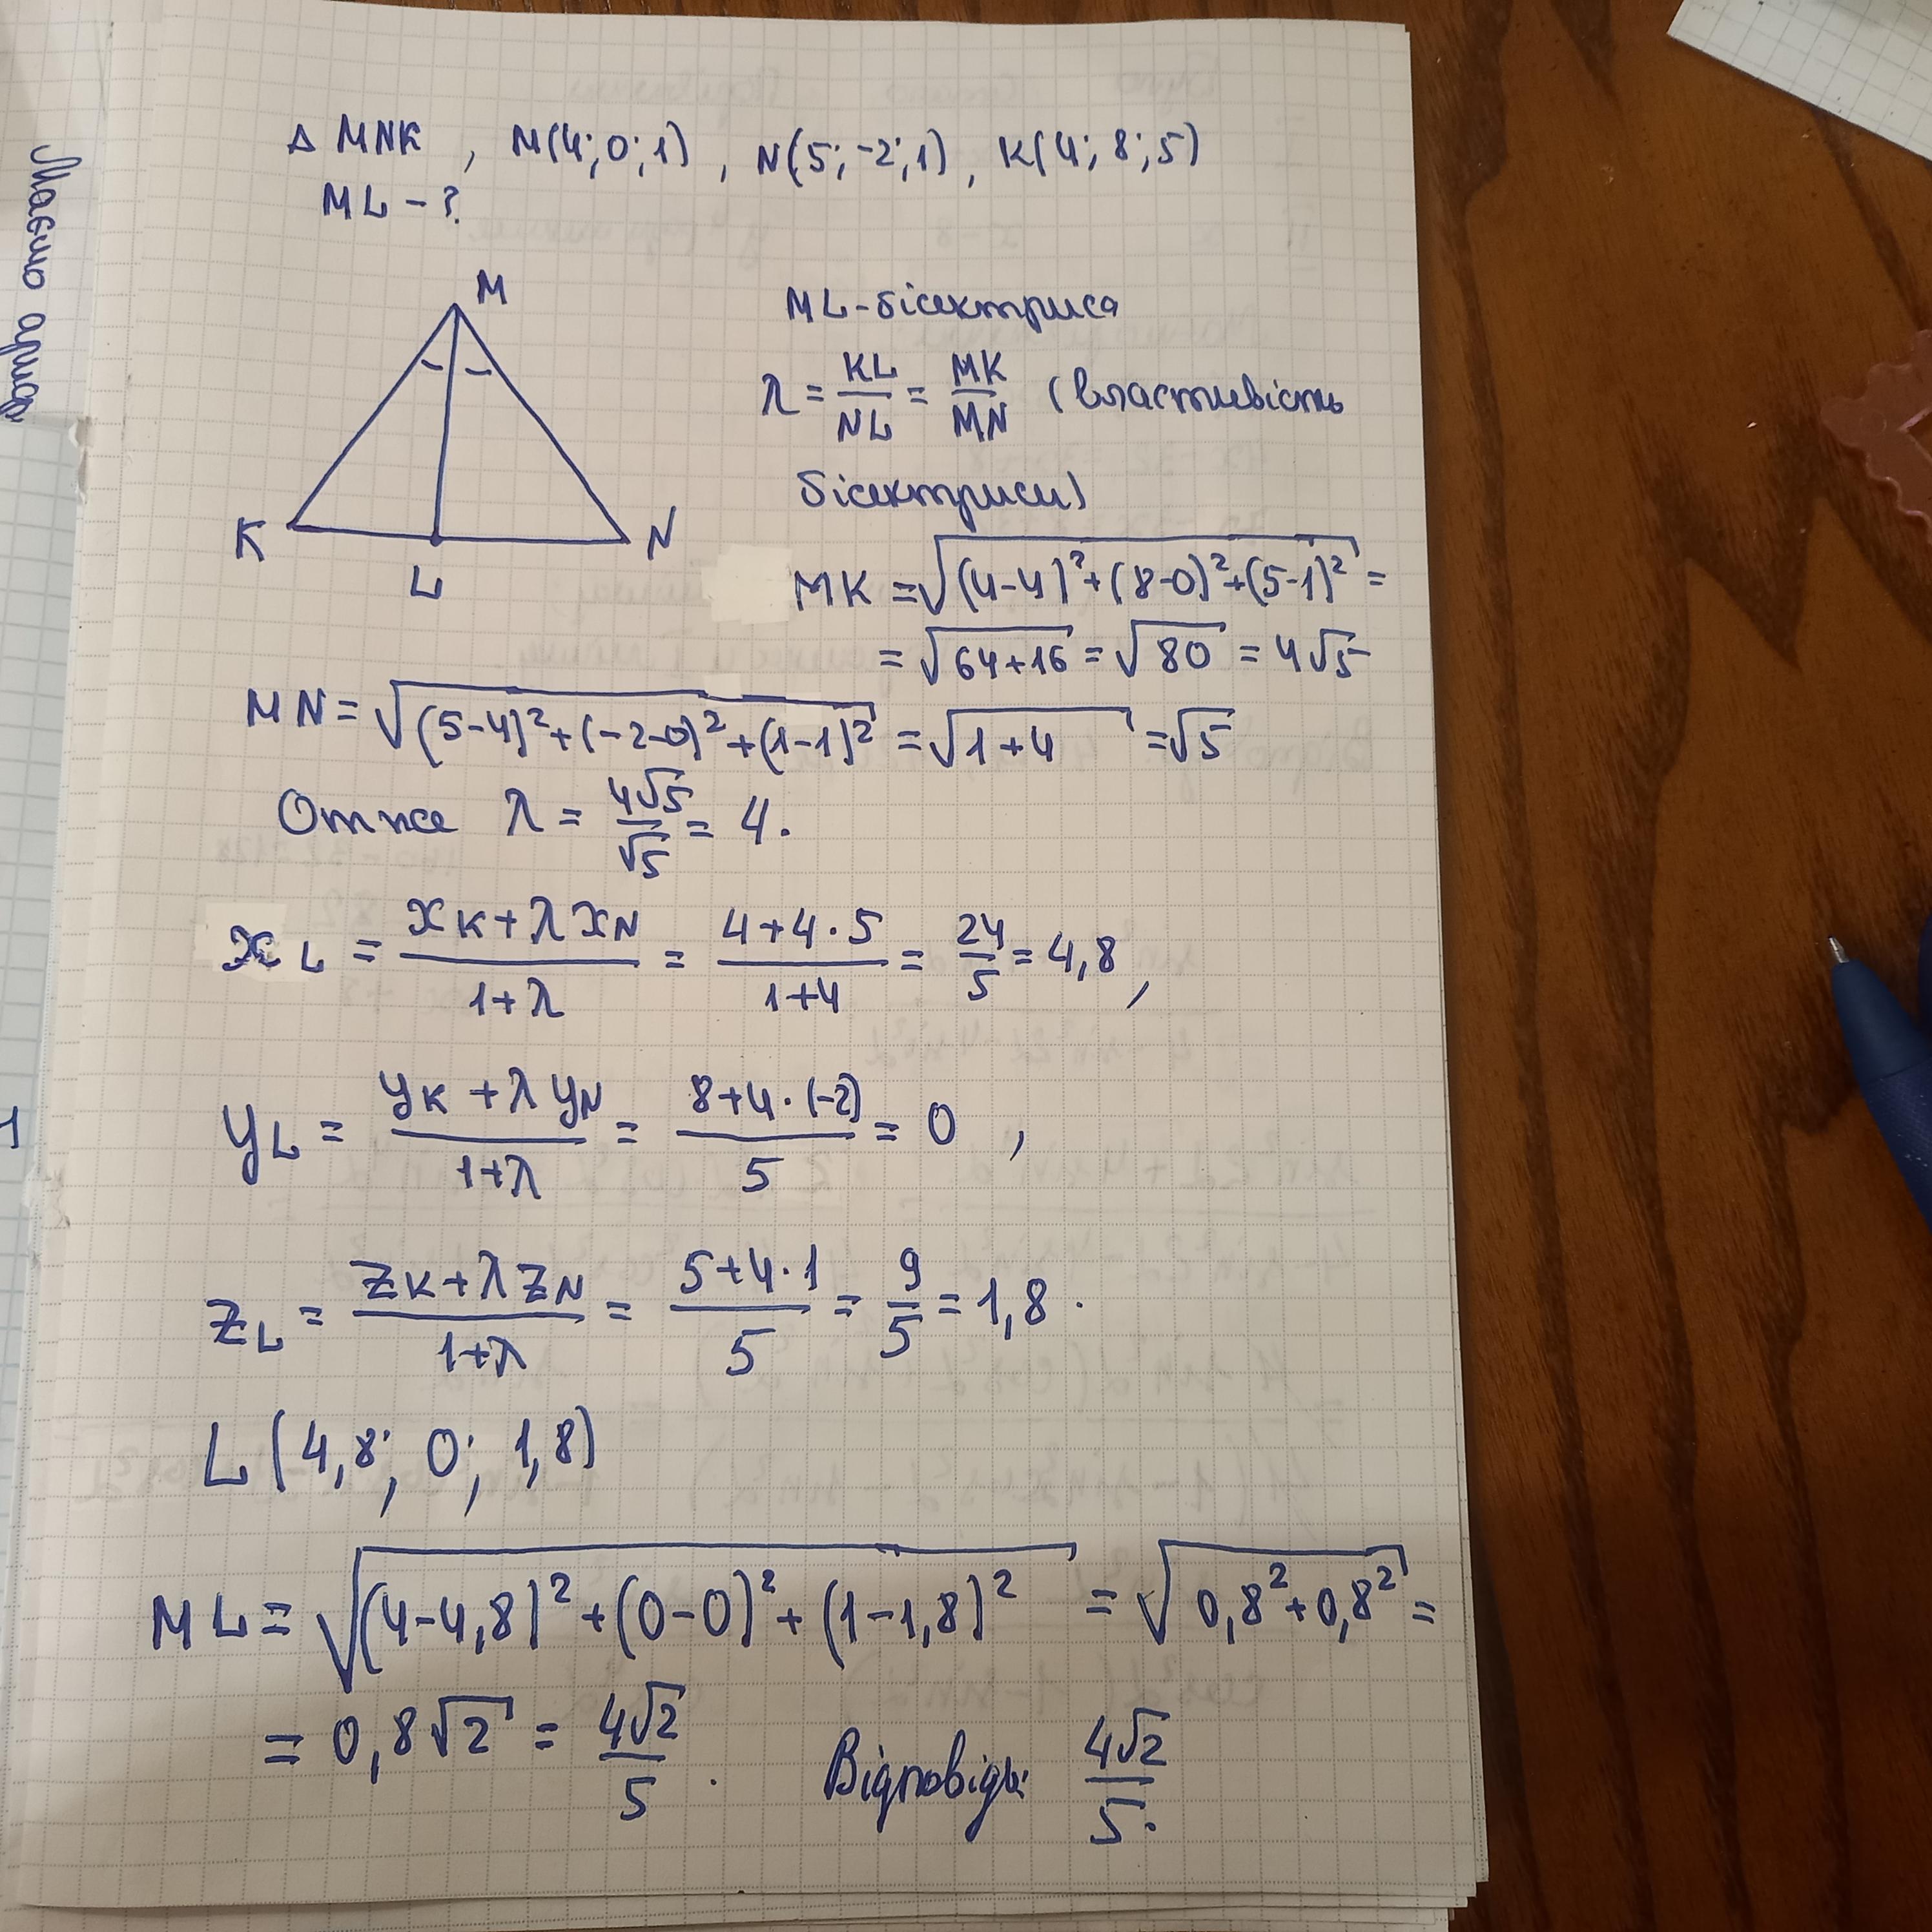 Δ MNK , M(4; 0; 1) , N(5; -2; 1) , K(4; 8; 5)
ML - ?
M
K
L
N
ML - бісектриса
λ = KL/NL = MK/MN (властивість
бісектриси)
MK = √((4-4)²+(8-0)²+(5-1)²) =
= √(64+16) = √80 = 4√5
MN = √((5-4)²+(-2-0)²+(1-1)²) = √(1+4) = √5
Отже λ = 4√5/√5 = 4.
x_L = (x_K + λ x_N)/(1+λ) = (4+4·5)/(1+4) = 24/5 = 4,8 ,
y_L = (y_K + λ y_N)/(1+λ) = (8+4·(-2))/5 = 0 ,
z_L = (z_K + λ z_N)/(1+λ) = (5+4·1)/5 = 9/5 = 1,8 .
L (4,8; 0; 1,8)
ML = √((4-4,8)²+(0-0)²+(1-1,8)²) = √(0,8²+0,8²) =
= 0,8√2 = 4√2/5 . Відповідь: 4√2/5.